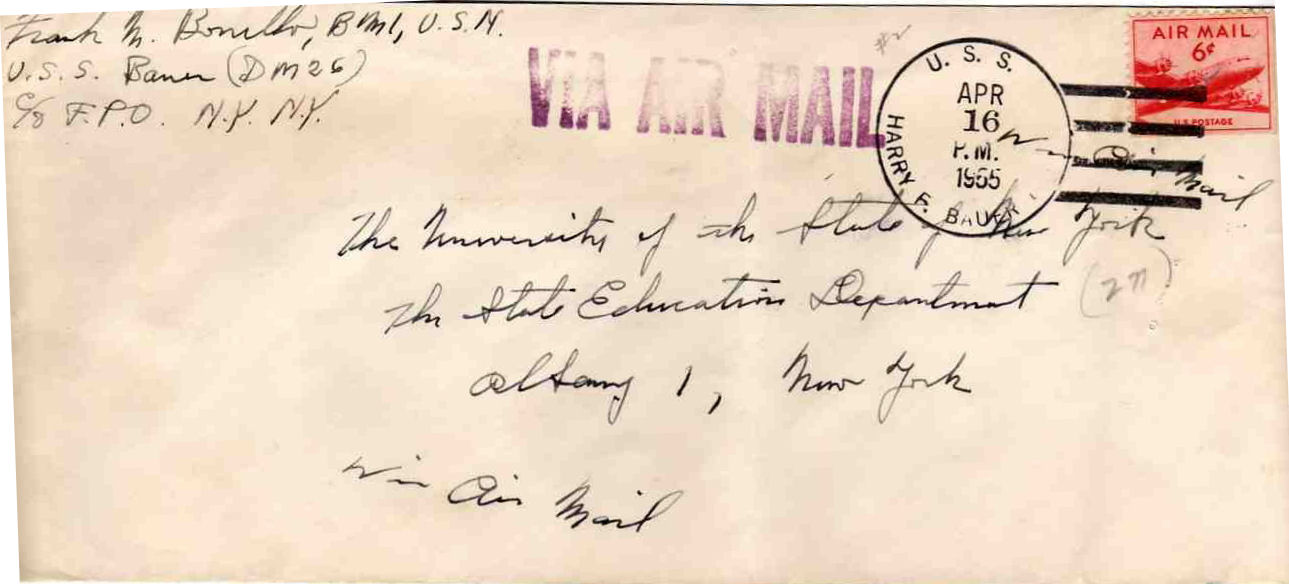 Frank M. Bonello, BM1, U.S.N.
U.S.S. Bauer (DM26)
c/o F.P.O. N.Y. N.Y.
VIA AIR MAIL
#2
U. S. S.
APR
16
P.M.
1955
HARRY F. BAUER
AIR MAIL
6¢
U.S. POSTAGE
Via Air Mail
The University of the State of New York
The State Education Department
Albany 1, New York
Via Air Mail